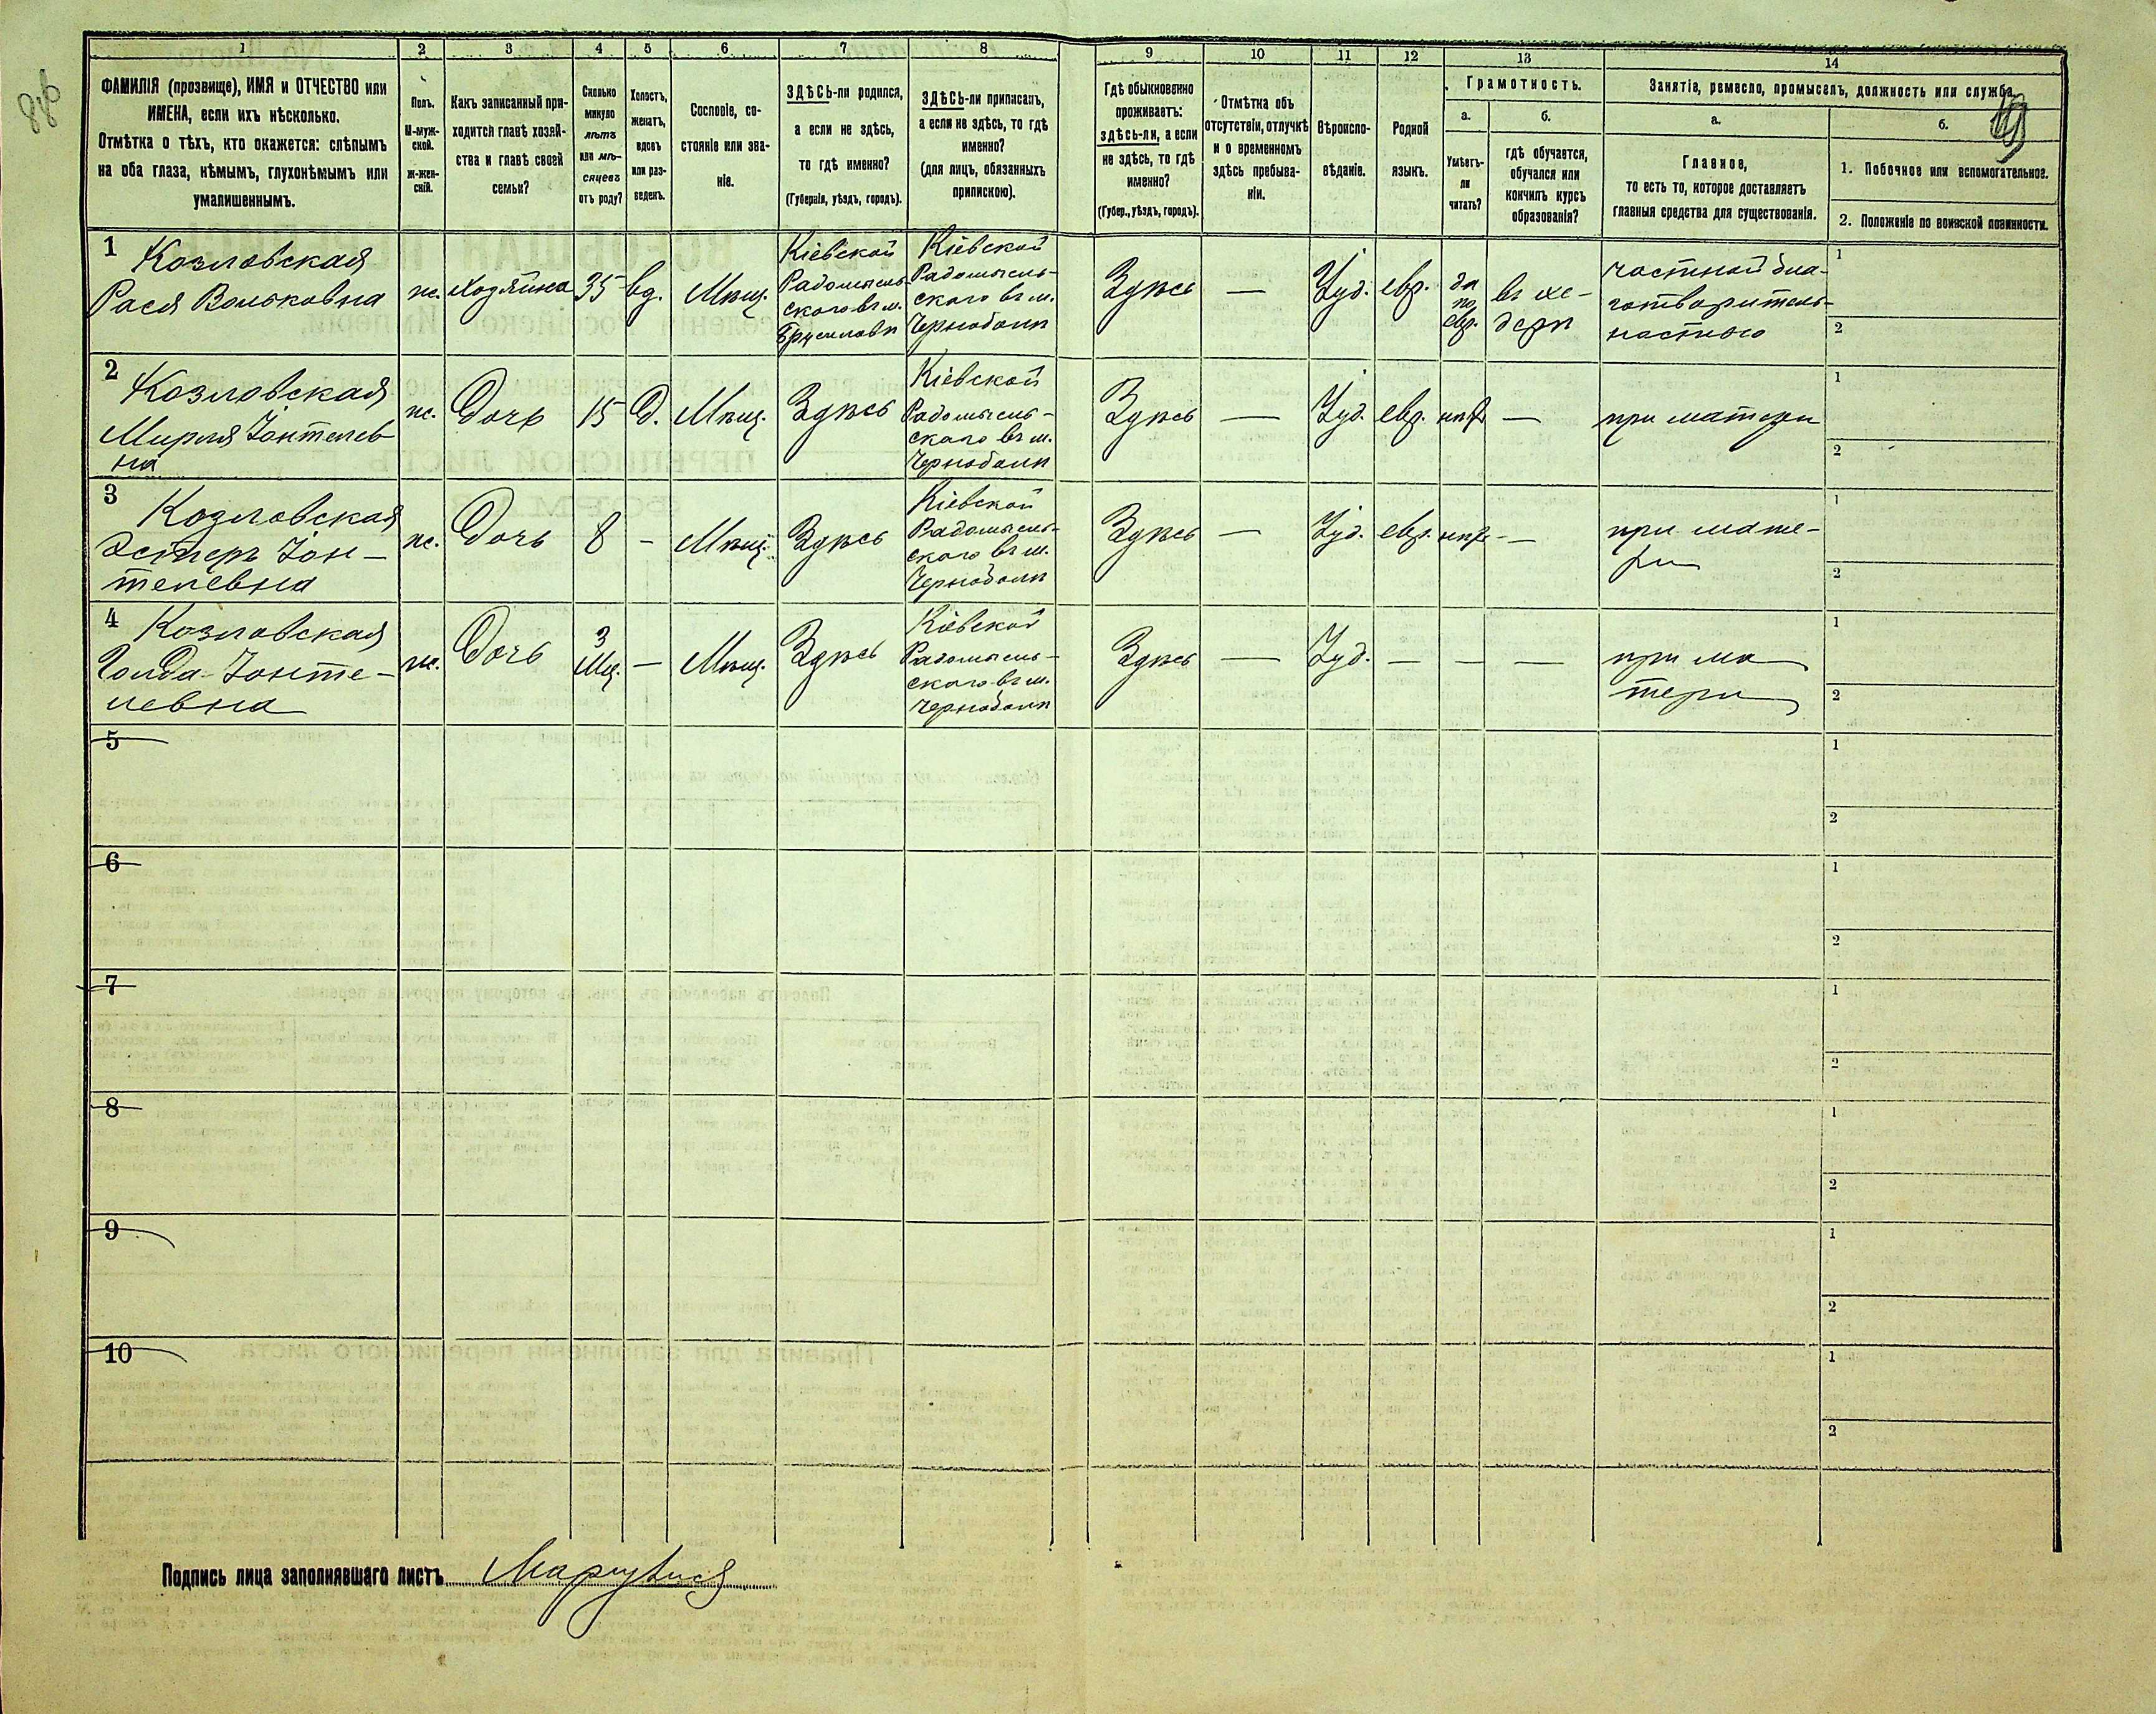 1 2 3 4 5 6 7 8 9 10 11 12 13 14
ФАМИЛІЯ (прозвище), ИМЯ и ОТЧЕСТВО или
ИМЕНА, если ихъ нѣсколько.
Отмѣтка о тѣхъ, кто окажется: слѣпымъ
на оба глаза, нѣмымъ, глухонѣмымъ или
умалишеннымъ.
Полъ.
М-муж-
ской.
ж-жен-
скій.
Какъ записанный при-
ходится главѣ хозяй-
ства и главѣ своей
семьи?
Сколько
минуло
лѣтъ
или мѣ-
сяцевъ
отъ роду?
Холостъ,
женатъ,
вдовъ
или раз-
веденъ.
Сословіе, со-
стояніе или зва-
ніе.
ЗДѢСЬ-ли родился,
а если не здѣсь,
то гдѣ именно?
(Губернія, уѣздъ, городъ).
ЗДѢСЬ-ли приписанъ,
а если не здѣсь, то гдѣ
именно?
(для лицъ, обязанныхъ
припискою).
Гдѣ обыкновенно
проживаетъ:
здѣсь-ли, а если
не здѣсь, то гдѣ
именно?
(Губер., уѣздъ, городъ).
Отмѣтка объ
отсутствіи, отлучкѣ
и о временномъ
здѣсь пребыва-
ніи.
Вѣроиспо-
вѣданіе.
Родной
языкъ.
Грамотность.
а.
Умѣетъ-
ли
читать?
б.
гдѣ обучается,
обучался или
кончилъ курсъ
образованія?
Занятія, ремесло, промыселъ, должность или служба.
а.
Главное,
то есть то, которое доставляетъ
главныя средства для существованія.
б.
1. Побочное или вспомогательное.
2. Положеніе по воинской повинности.
1
Козловская
Рася Вольковна
ж.
хозяйка
35
вд.
Мѣщ.
Кіевской
Радомысль-
скаго въ м.
Брусиловѣ
Кіевской
Радомысль-
скаго въ м.
Чернобылѣ
Здѣсь
—
Іуд.
евр.
да
по
евр.
въ хе-
дерѣ
частной бла-
готворитель-
ностью
1
2
2
Козловская
Мирля Іонтелев-
на
ж.
Дочь
15
д.
Мѣщ.
Здѣсь
Кіевской
Радомысль-
скаго въ м.
Чернобылѣ
Здѣсь
—
Іуд.
евр.
нѣтъ
—
при матери
1
2
3
Козловская
Эстеръ Іон-
телевна
ж.
Дочь
8
—
Мѣщ.
Здѣсь
Кіевской
Радомысль-
скаго въ м.
Чернобылѣ
Здѣсь
—
Іуд.
евр.
нѣтъ
—
при мате-
ри
1
2
4
Козловская
Голда Іонте-
левна
ж.
Дочь
3
Мѣ.
—
Мѣщ.
Здѣсь
Кіевской
Радомысль-
скаго въ м.
Чернобылѣ
Здѣсь
—
Іуд.
—
—
—
при ма
тери
1
2
5
1
2
6
1
2
7
1
2
8
1
2
9
1
2
10
1
2
Подпись лица заполнявшаго листъ